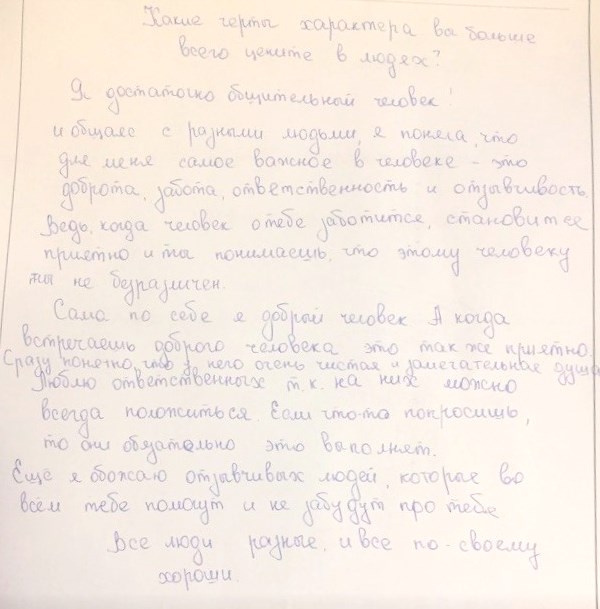 Какие черты характера вы больше
всего цените в людях?
Я достаточно общительный человек!
и общаяс с разными людьми, я поняла, что
для меня самое важное в человеке - это
доброта, забота, ответственность и отзывчивость.
Ведь, когда человек о тебе заботится, становится
приятно и ты понимаешь, что этому человеку
ты не безразличен.
Сама по себе я добрый человек А когда
встречаешь доброго человека это так же приятно.
Сразу понятно, что у него очень чистая и замечательная душа
Люблю ответственных т.к. на них можно
всегда положиться. Если что-то попросишь,
то они обязательно это выполнят.
Ещё я обожаю отзывчивых людей, которые во
всём тебе помогут и не забудут про тебе
Все люди разные, и все по-своему
хороши.